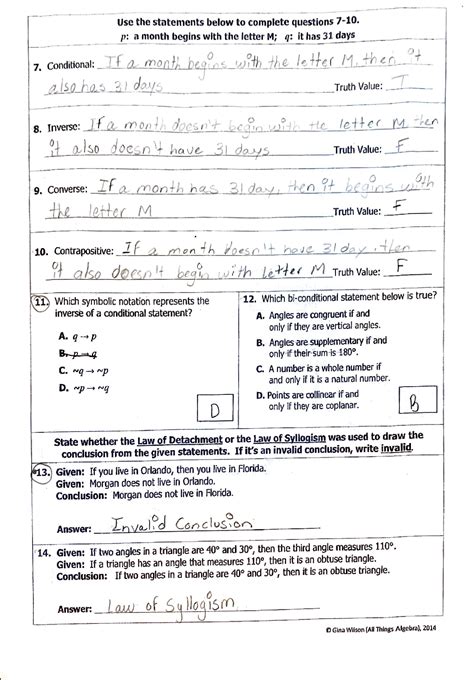 Use the statements below to complete questions 7-10.
p: a month begins with the letter M; q: it has 31 days
7. Conditional: If a month begins with the letter M, then it
also has 31 days Truth Value: T
8. Inverse: If a month doesn't begin with the letter M then
it also doesn't have 31 days Truth Value: F
9. Converse: If a month has 31 day, then it begins with
the letter M Truth Value: F
10. Contrapositive: If a month doesn't have 31 day, then
it also doesn't begin with letter M Truth Value: F
11. Which symbolic notation represents the
inverse of a conditional statement?
A. q → p
B. p → q
C. ~q → ~p
D. ~p → ~q
D
12. Which bi-conditional statement below is true?
A. Angles are congruent if and
only if they are vertical angles.
B. Angles are supplementary if and
only if their sum is 180°.
C. A number is a whole number if
and only if it is a natural number.
D. Points are collinear if and
only if they are coplanar.
B
State whether the Law of Detachment or the Law of Syllogism was used to draw the
conclusion from the given statements. If it's an invalid conclusion, write invalid.
13. Given: If you live in Orlando, then you live in Florida.
Given: Morgan does not live in Orlando.
Conclusion: Morgan does not live in Florida.
Answer: Invalid Conclusion
14. Given: If two angles in a triangle are 40° and 30°, then the third angle measures 110°.
Given: If a triangle has an angle that measures 110°, then it is an obtuse triangle.
Conclusion: If two angles in a triangle are 40° and 30°, then it is an obtuse triangle.
Answer: Law of Syllogism
© Gina Wilson (All Things Algebra), 2014